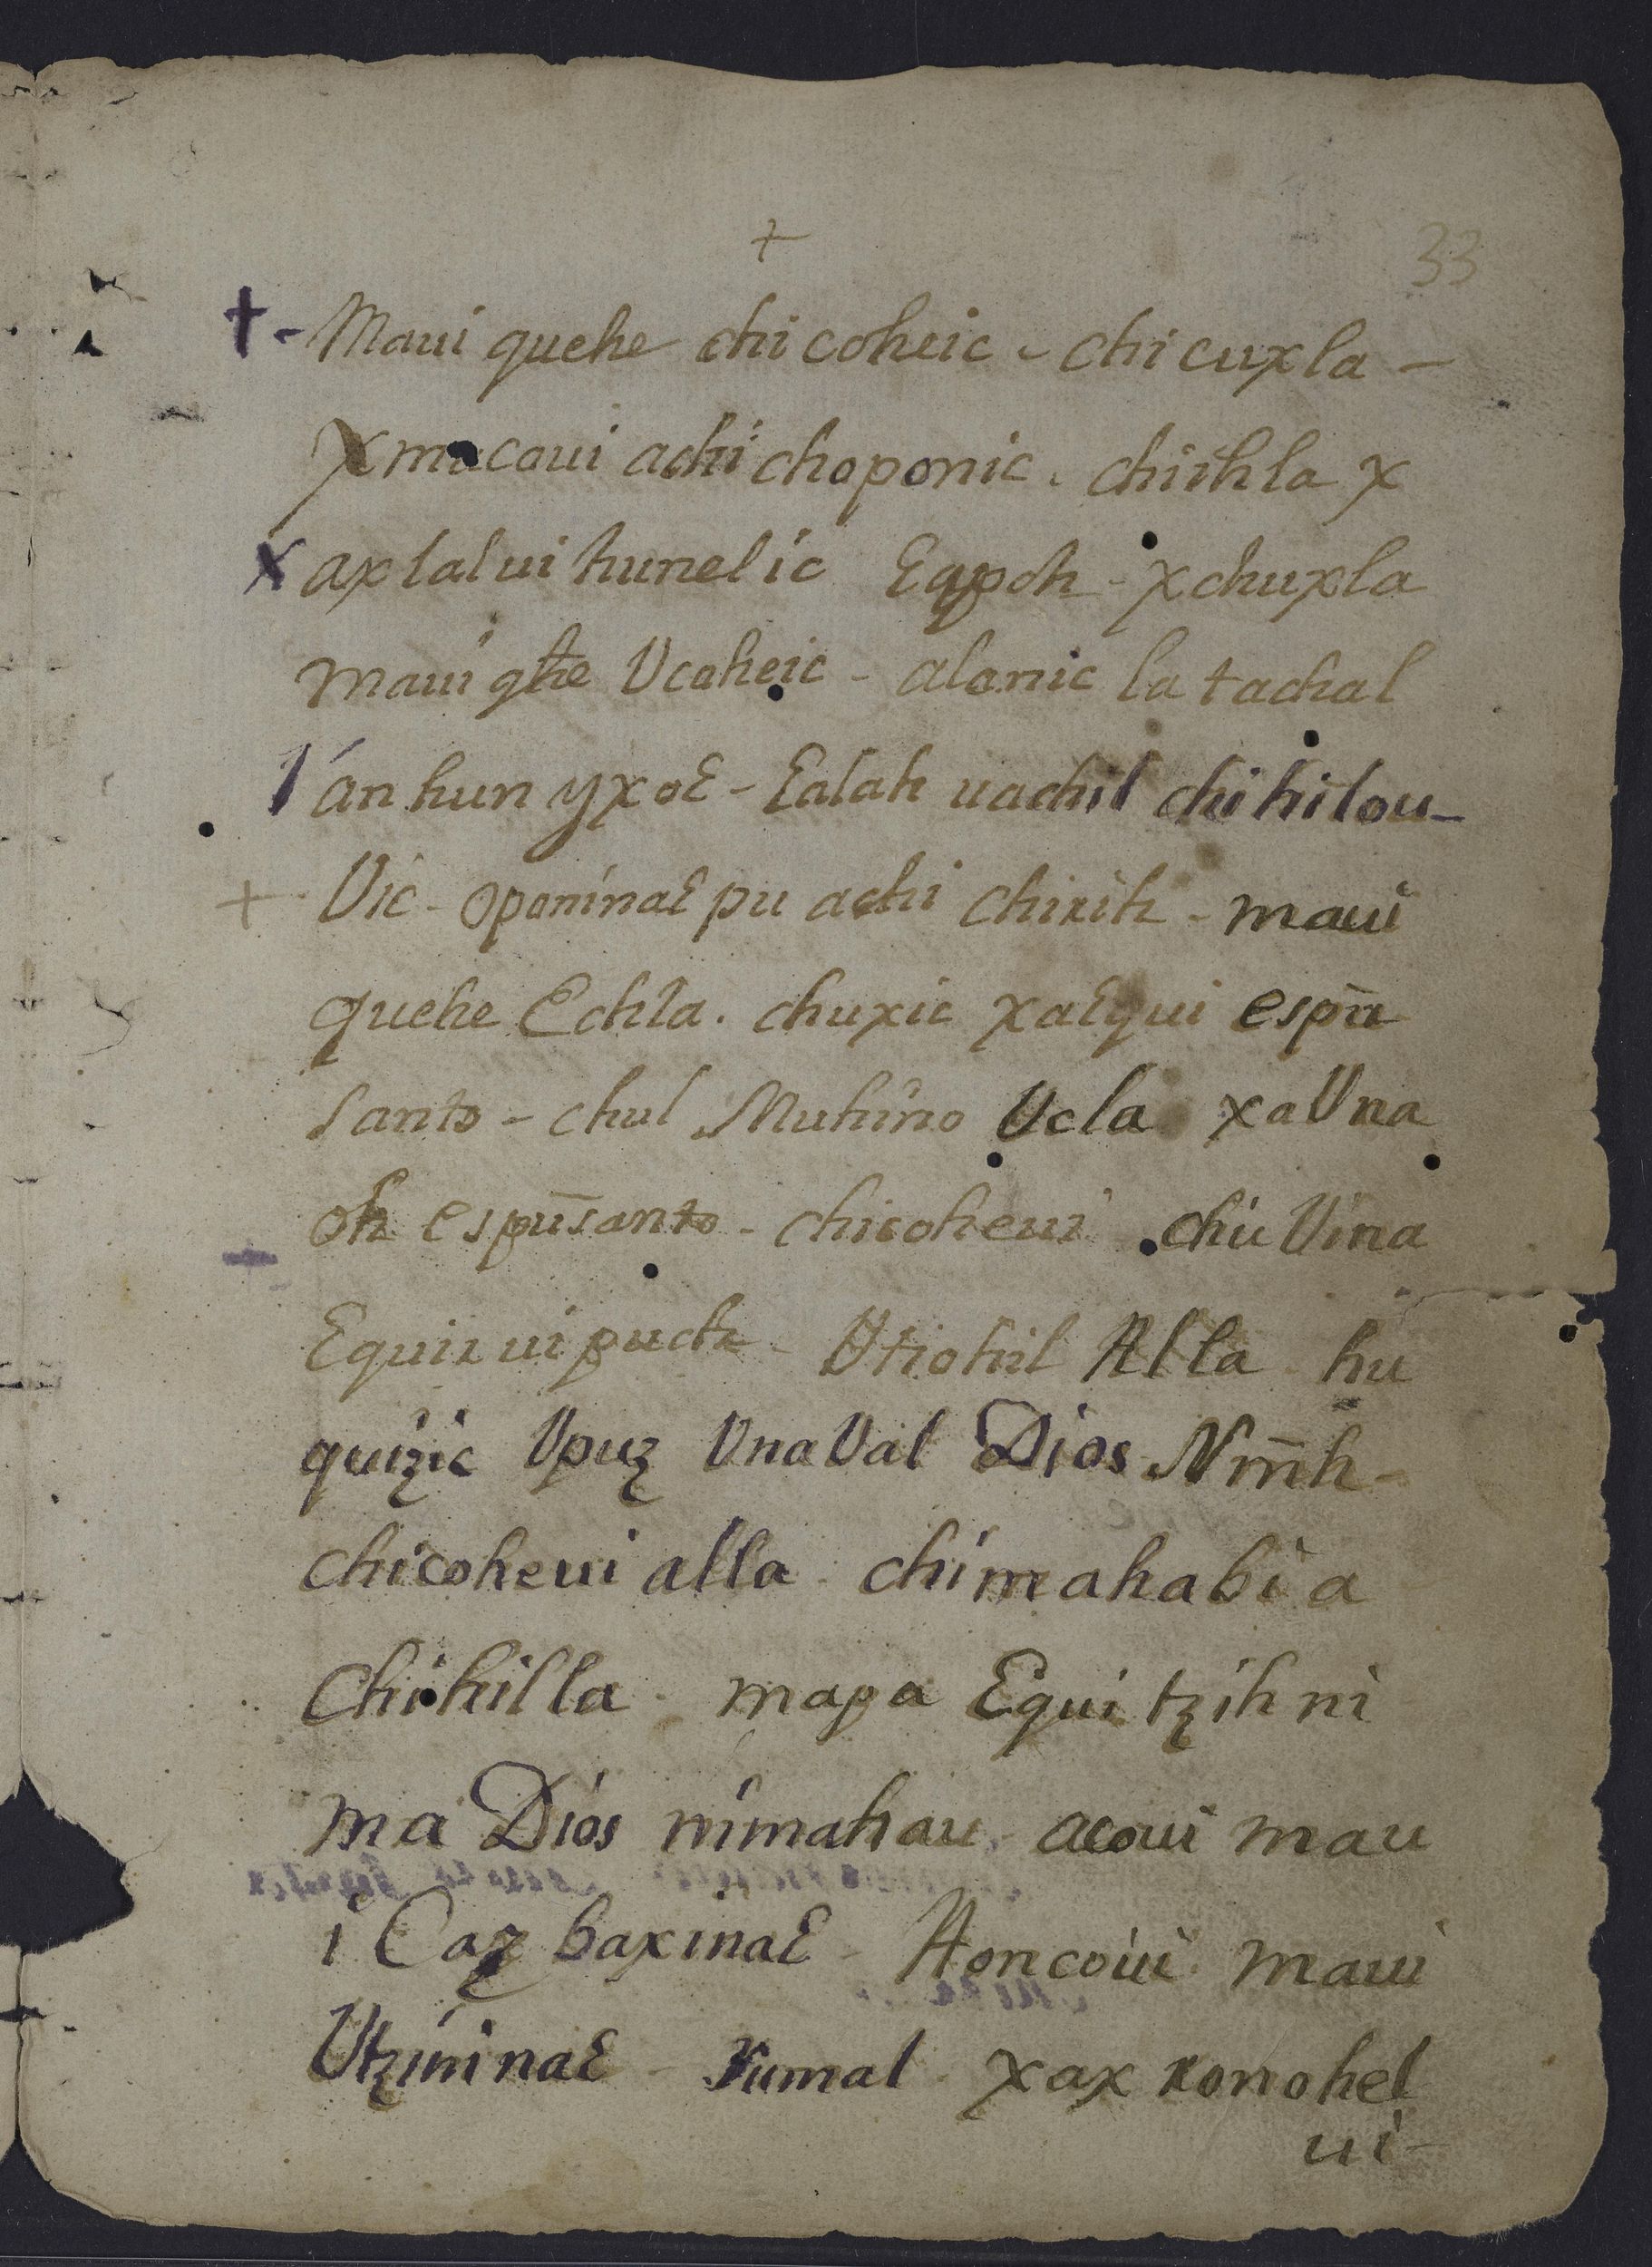 +
33
† - Maui quehe chi coheic - chi cuxla -
xmacaui achi choponic. chichla x
x axlalui hunelic Ɛapoh - xchuxla
maui qhe Vcoheic - alanic la tachal
an hun yxoƐ - Ɛalah uachil chi hilou -
+ Vic - oponinaƐ pu achi chirih - maui
quehe Echla. chuxic xaƐqui espũ
santo - chul Muhino Vcla xa Vna
oh espũsanto - chicoheui chu Vina
Ɛquir ui puch - Vtiohil Alla - hu
quizic Vpuz Vna Val Dios Nm̃h -
chicoheui alla - chi mahabi a
Chihilla - mapa Ɛqui tzih ni
ma Dios nimahau - acoui mau
i Caz baxinaƐ - Honcoui maui
VtzininaƐ - rumal - xax ronohel
ui -